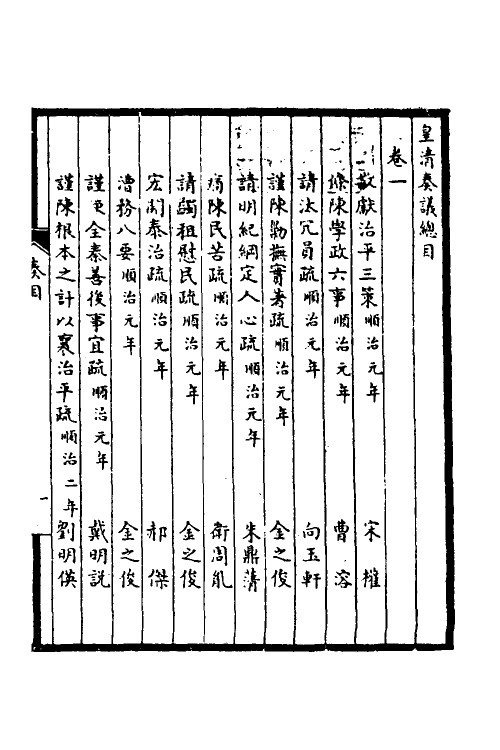 皇清奏議總目
卷一
敬獻治平三策順治元年 宋權
條陳學政六事順治元年 曹溶
請汰冗員疏順治元年 向玉軒
謹陳勦撫實著疏順治元年 金之俊
請明紀綱定人心疏順治元年 朱鼎藩
痛陳民苦疏順治元年 衛周胤
請蠲租慰民疏順治元年 金之俊
宏開泰治疏順治元年 郝傑
漕務八要順治元年 金之俊
謹更全秦善後事宜疏順治元年 戴明説
謹陳根本之計以襄治平疏順治二年 劉明偀
奏目
一